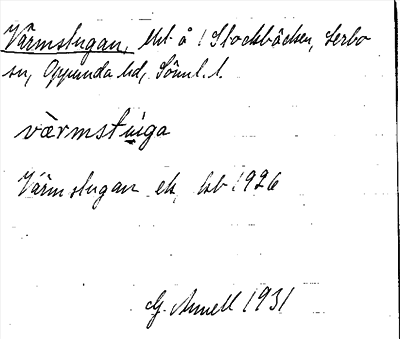 Värmstugan, lht å Stockbäcken, Lerbo
sn, Oppunda hd, Sörml. l.
værmstuga
Värmstugan ek, kb 1926
G. Annell 1931